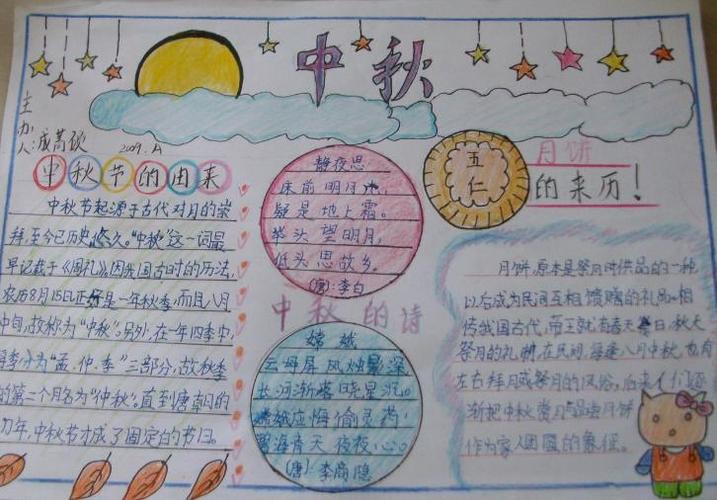 中秋
主办人:成蒿钦
2009.
中秋节的由来
中秋节起源于古代对月的崇
拜,至今已历史悠久。“中秋”这一词最
早记载于《周礼》,因我国古时的历法,
农历8月15日正好是一年秋季,而且八月
中旬,故称为“中秋”。另外,在一年四季中,
季分为“孟、仲、季”三部分,故秋季
的第二个月名为“仲秋”。直到唐朝的
初年,中秋节才成了固定的节日。
静夜思
床前明月光,
疑是地上霜。
举头望明月,
低头思故乡。
(唐):李白
中秋的诗
嫦娥
云母屏风烛影深
长河渐落晓星沉。
嫦娥应悔偷灵药,
海青天夜夜心。
(唐):李商隐
五仁
月饼
的来历!
月饼,原本是祭月时供品的一种
以后成为民间互相馈赠的礼品。相
传我国古代,帝王就有春天日,秋天
祭月的礼制,在民间,每逢八月中秋,也有
左右拜月或祭月的风俗,后来人们逐
渐把中秋赏月与品尝月饼
作为家人团圆的象征。